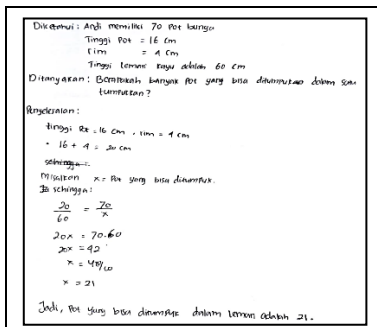 Diketahui : Andi memiliki 70 Pot bunga
Tinggi Pot = 16 Cm
rim = 4 Cm
Tinggi lemari kayu adalah 60 cm
Ditanyakan : Berapakah banyak Pot yang bisa ditumpukan dalam satu
tumpukan ?
Penyelesaian :
tinggi Pot = 16 cm , rim = 4 cm
= 16 + 4 = 20 cm
sehingga =
Misalkan x = Pot yang bisa ditumpuk.
sehingga :
20/60 = 70/x
20x = 70.60
20x = 42
x =
x = 21
Jadi, Pot yang bisa ditumpuk dalam lemari adalah 21.